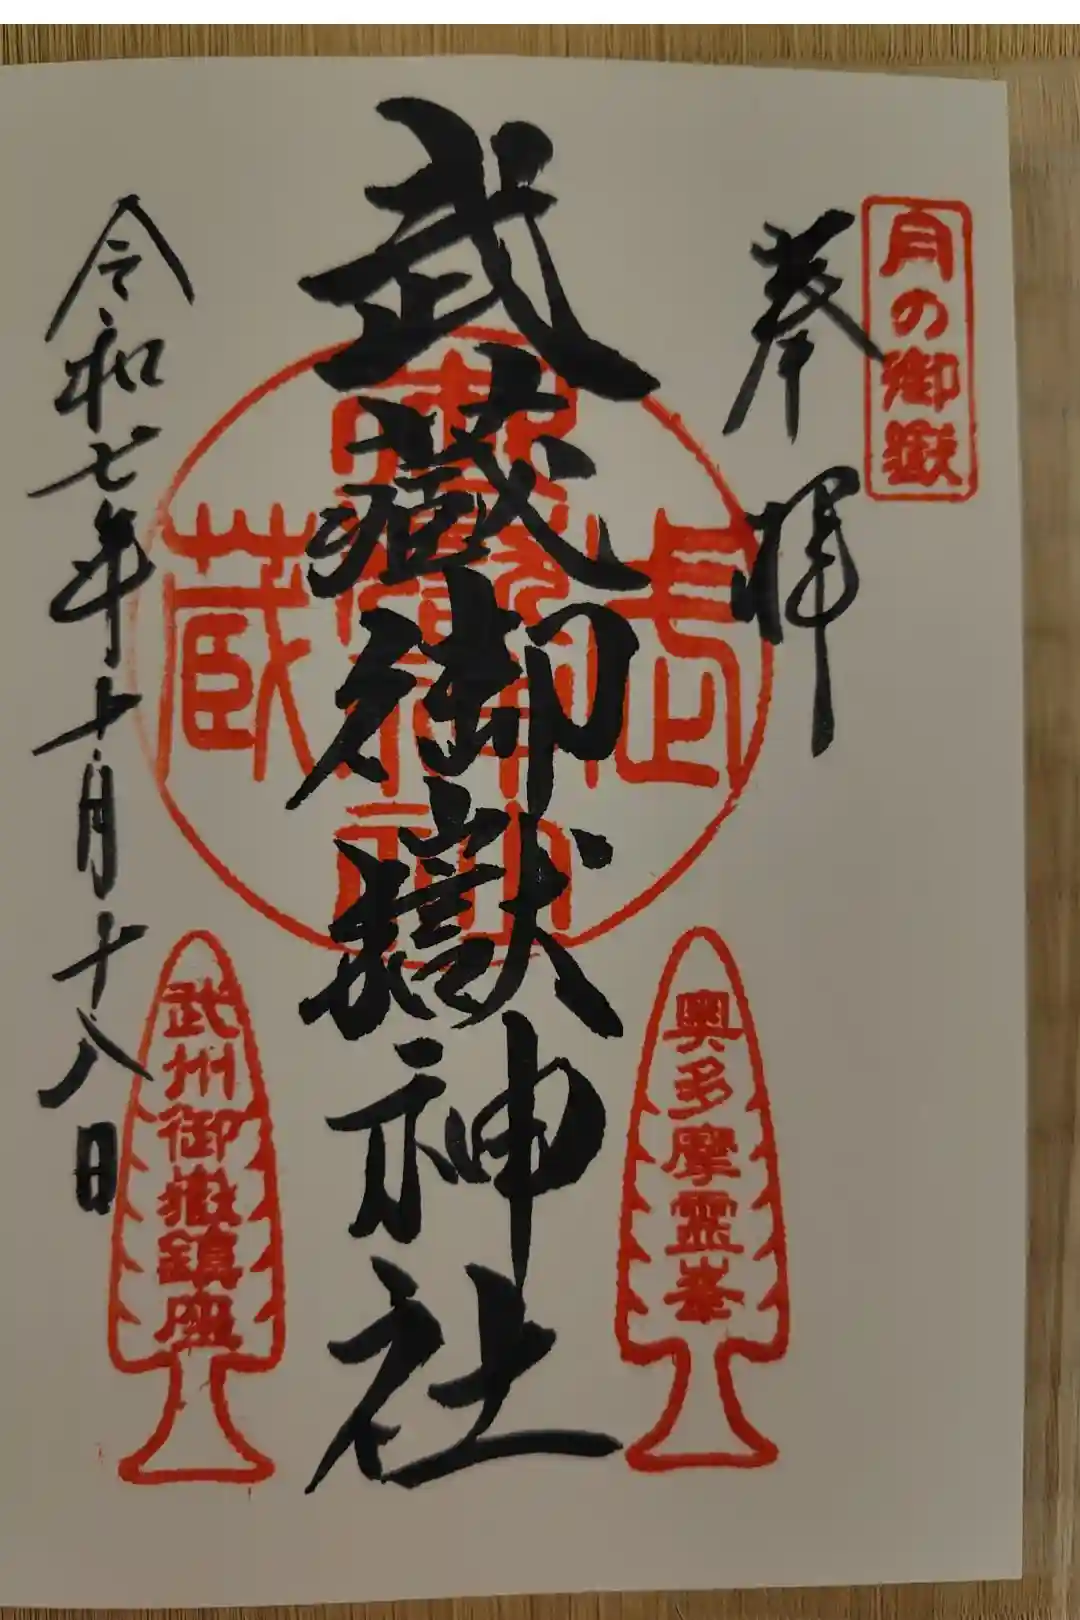 月の御嶽
奉拝
武蔵御嶽神社
長
蔵
奥多摩霊峯
武州御嶽鎮座
令和七年十月十八日